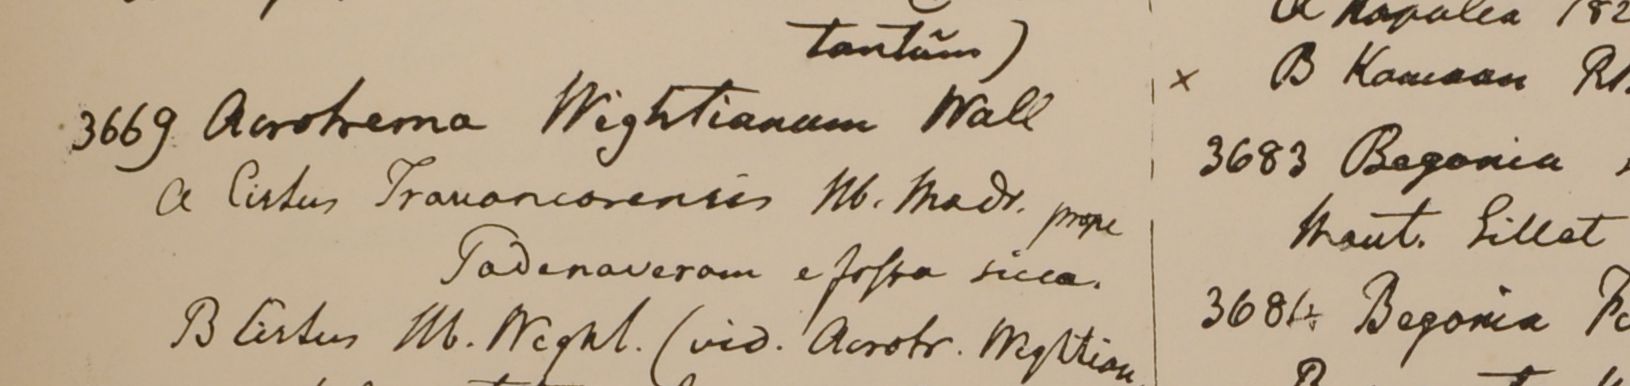 tantũm)
3669 Acrotrema Wightianum Wall
a Cistus Travancorensis Hb. Madr. prope
Padenaveram e fossa sicca.
B Cistus Hb. Wight. (vid. Acrotr. Wightian.
B Kamaon
3683 Begonia
Mont. Sillet
3684 Begonia